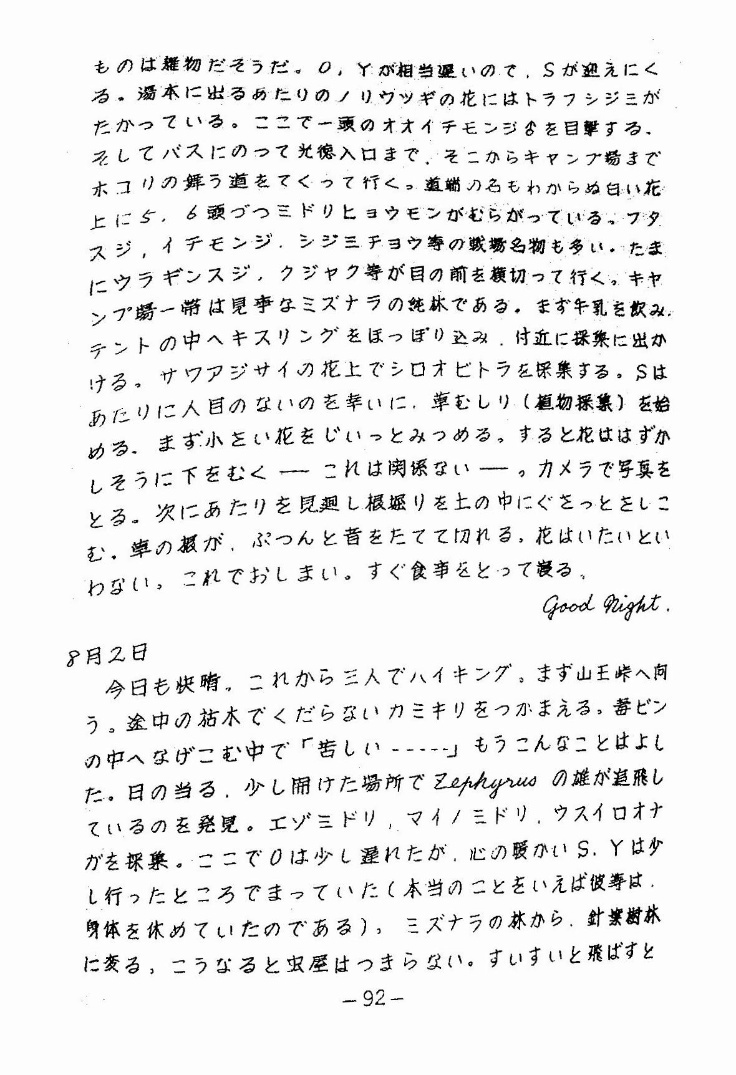 ものは雑物だそうだ。O, Yが相当遅いので, Sが迎えにく
る。湯本に出るあたりのノリウツギの花にはトラフシジミが
たかっている。ここで一頭のオオイチモンジ♂を目撃する。
そしてバスにのって光徳入口まで, そこからキャンプ場まで
ホコリの舞う道をてくって行く。道端の名もわからぬ白い花
上に5, 6頭づつミドリヒョウモンがむらがっている。フタ
スジ, イチモンジ, シジミチョウ等の戦場名物も多い。たま
にウラギンスジ, クジャク等が目の前を横切って行く。キャ
ンプ場一帯は見事なミズナラの純林である。まず牛乳を飲み,
テントの中へキスリングをほっぽり込み, 付近に採集に出か
ける。サワアジサイの花上でシロオビトラを採集する。Sは
あたりに人目のないのを幸いに, 草むしり(植物採集)を始
める。まず小さい花をじぃっとみつめる。すると花ははずか
しそうに下をむく ── これは関係ない ──。カメラで写真を
とる。次にあたりを見廻し根掘りを土の中にぐさっとさしこ
む。草の根が, ぷつんと音をたてて切れる。花はいたいとい
わない。これでおしまい。すぐ食事をとって寝る。
Good Night.
8月2日
今日も快晴。これから三人でハイキング。まず山王峠へ向
う。途中の枯木でくだらないカミキリをつかまえる。毒ビン
の中へなげこむ中で「苦しい -----」もうこんなことはよし
た。日の当る, 少し開けた場所で Zephyrus の雄が追飛し
ているのを発見。エゾミドリ, マイノミドリ, ウスイロオナ
ガを採集。ここでOは少し遅れたが, 心の暖かいS, Yは少
し行ったところでまっていた(本当のことをいえば彼等は,
身体を休めていたのである)。ミズナラの林から, 針葉樹林
に変る。こうなると虫屋はつまらない。すいすいと飛ばすと
-92-